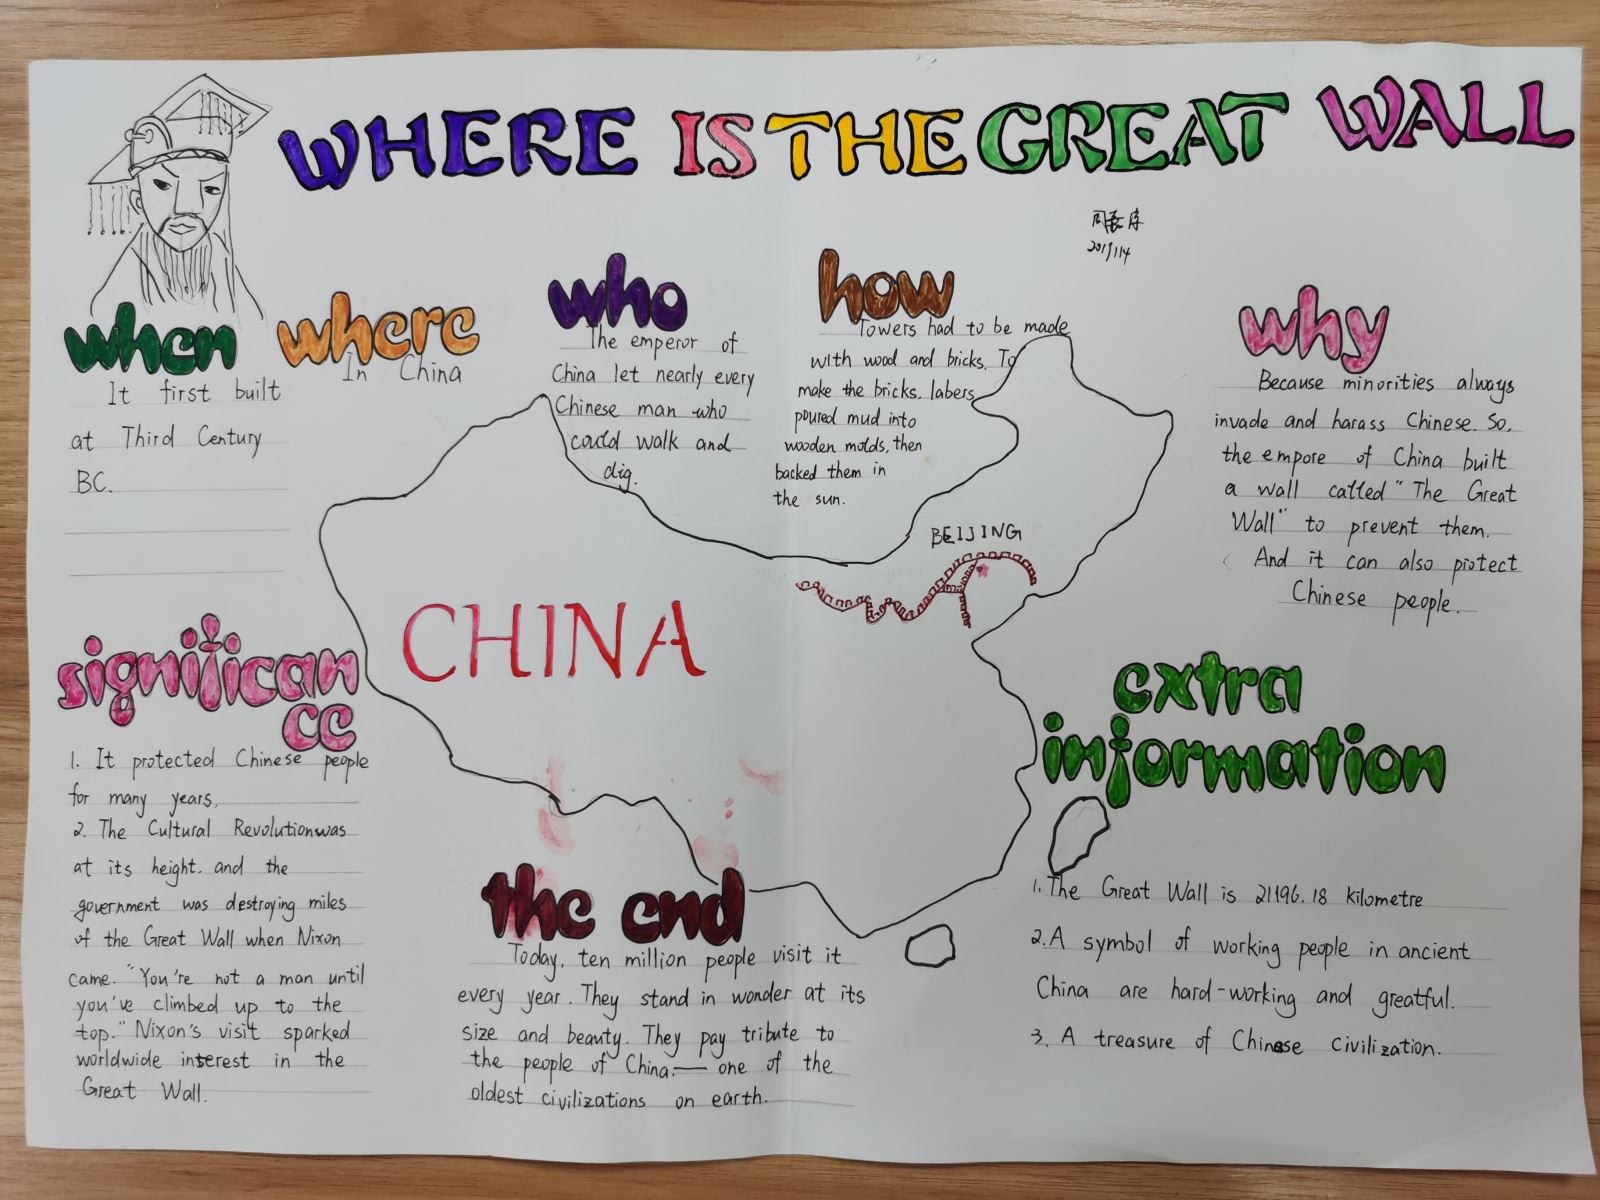 WHERE IS THE GREAT WALL
2019114
when
It first built
at Third Century
BC.
where
In China
who
The emperor of
China let nearly every
Chinese man who
could walk and
dig.
how
Towers had to be made
with wood and bricks. To
make the bricks, labers
poured mud into
wooden molds, then
backed them in
the sun.
why
Because minorities always
invade and harass Chinese. So,
the empore of China built
a wall called "The Great
Wall" to prevent them.
And it can also protect
Chinese people.
BEIJING
CHINA
significan
ce
1. It protected Chinese people
for many years.
2. The Cultural Revolution was
at its height. and the
government was destroying miles
of the Great Wall when Nixon
came. "You're not a man until
you've climbed up to the
top." Nixon's visit sparked
worldwide interest in the
Great Wall.
the end
Today, ten million people visit it
every year. They stand in wonder at its
size and beauty. They pay tribute to
the people of China.— one of the
oldest civilizations on earth.
extra
information
1. The Great Wall is 21196.18 kilometre
2. A symbol of working people in ancient
China are hard-working and greatful.
3. A treasure of Chinese civilization.